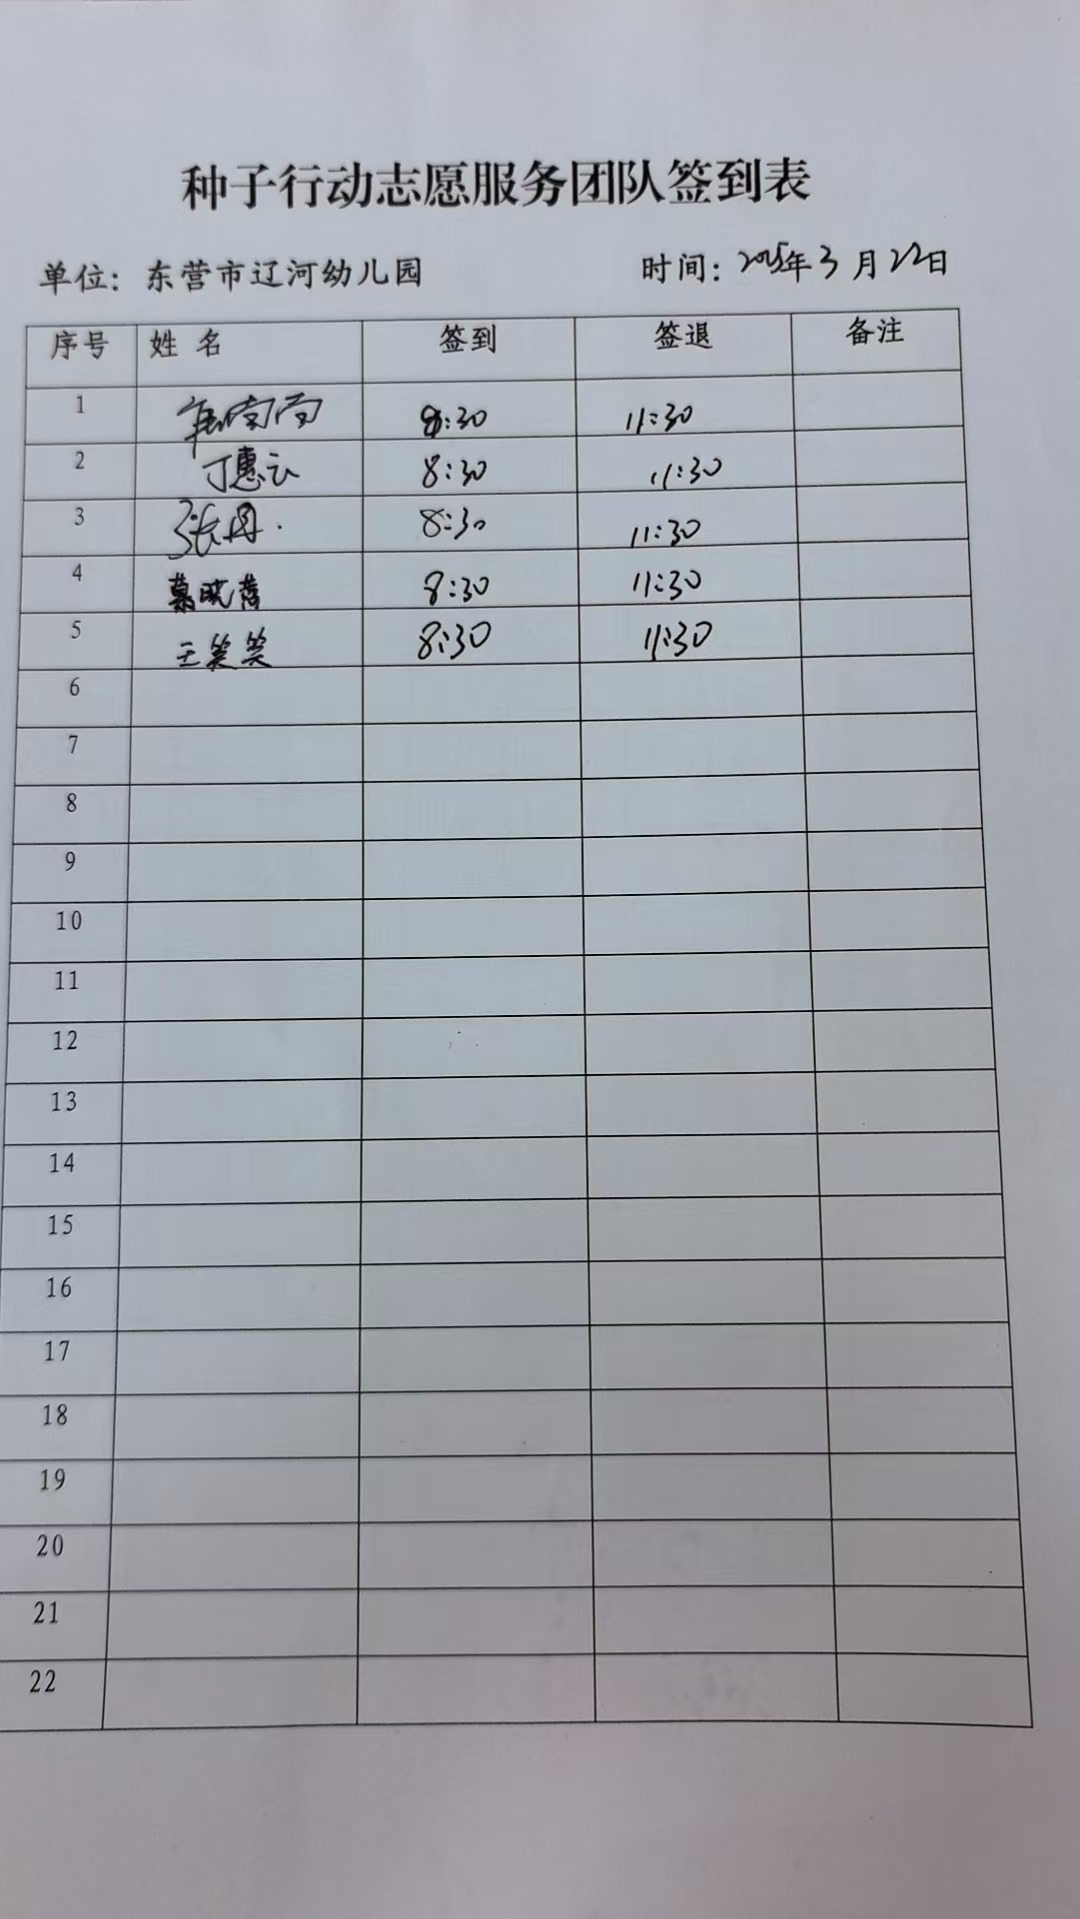 种子行动志愿服务团队签到表
单位：东营市辽河幼儿园 时间：2025年3月22日
序号 姓名 签到 签退 备注
1 8:30 11:30
2 丁惠云 8:30 11:30
3 张丹 8:30 11:30
4 慕晓蕾 8:30 11:30
5 王笑笑 8:30 11:30
6
7
8
9
10
11
12
13
14
15
16
17
18
19
20
21
22